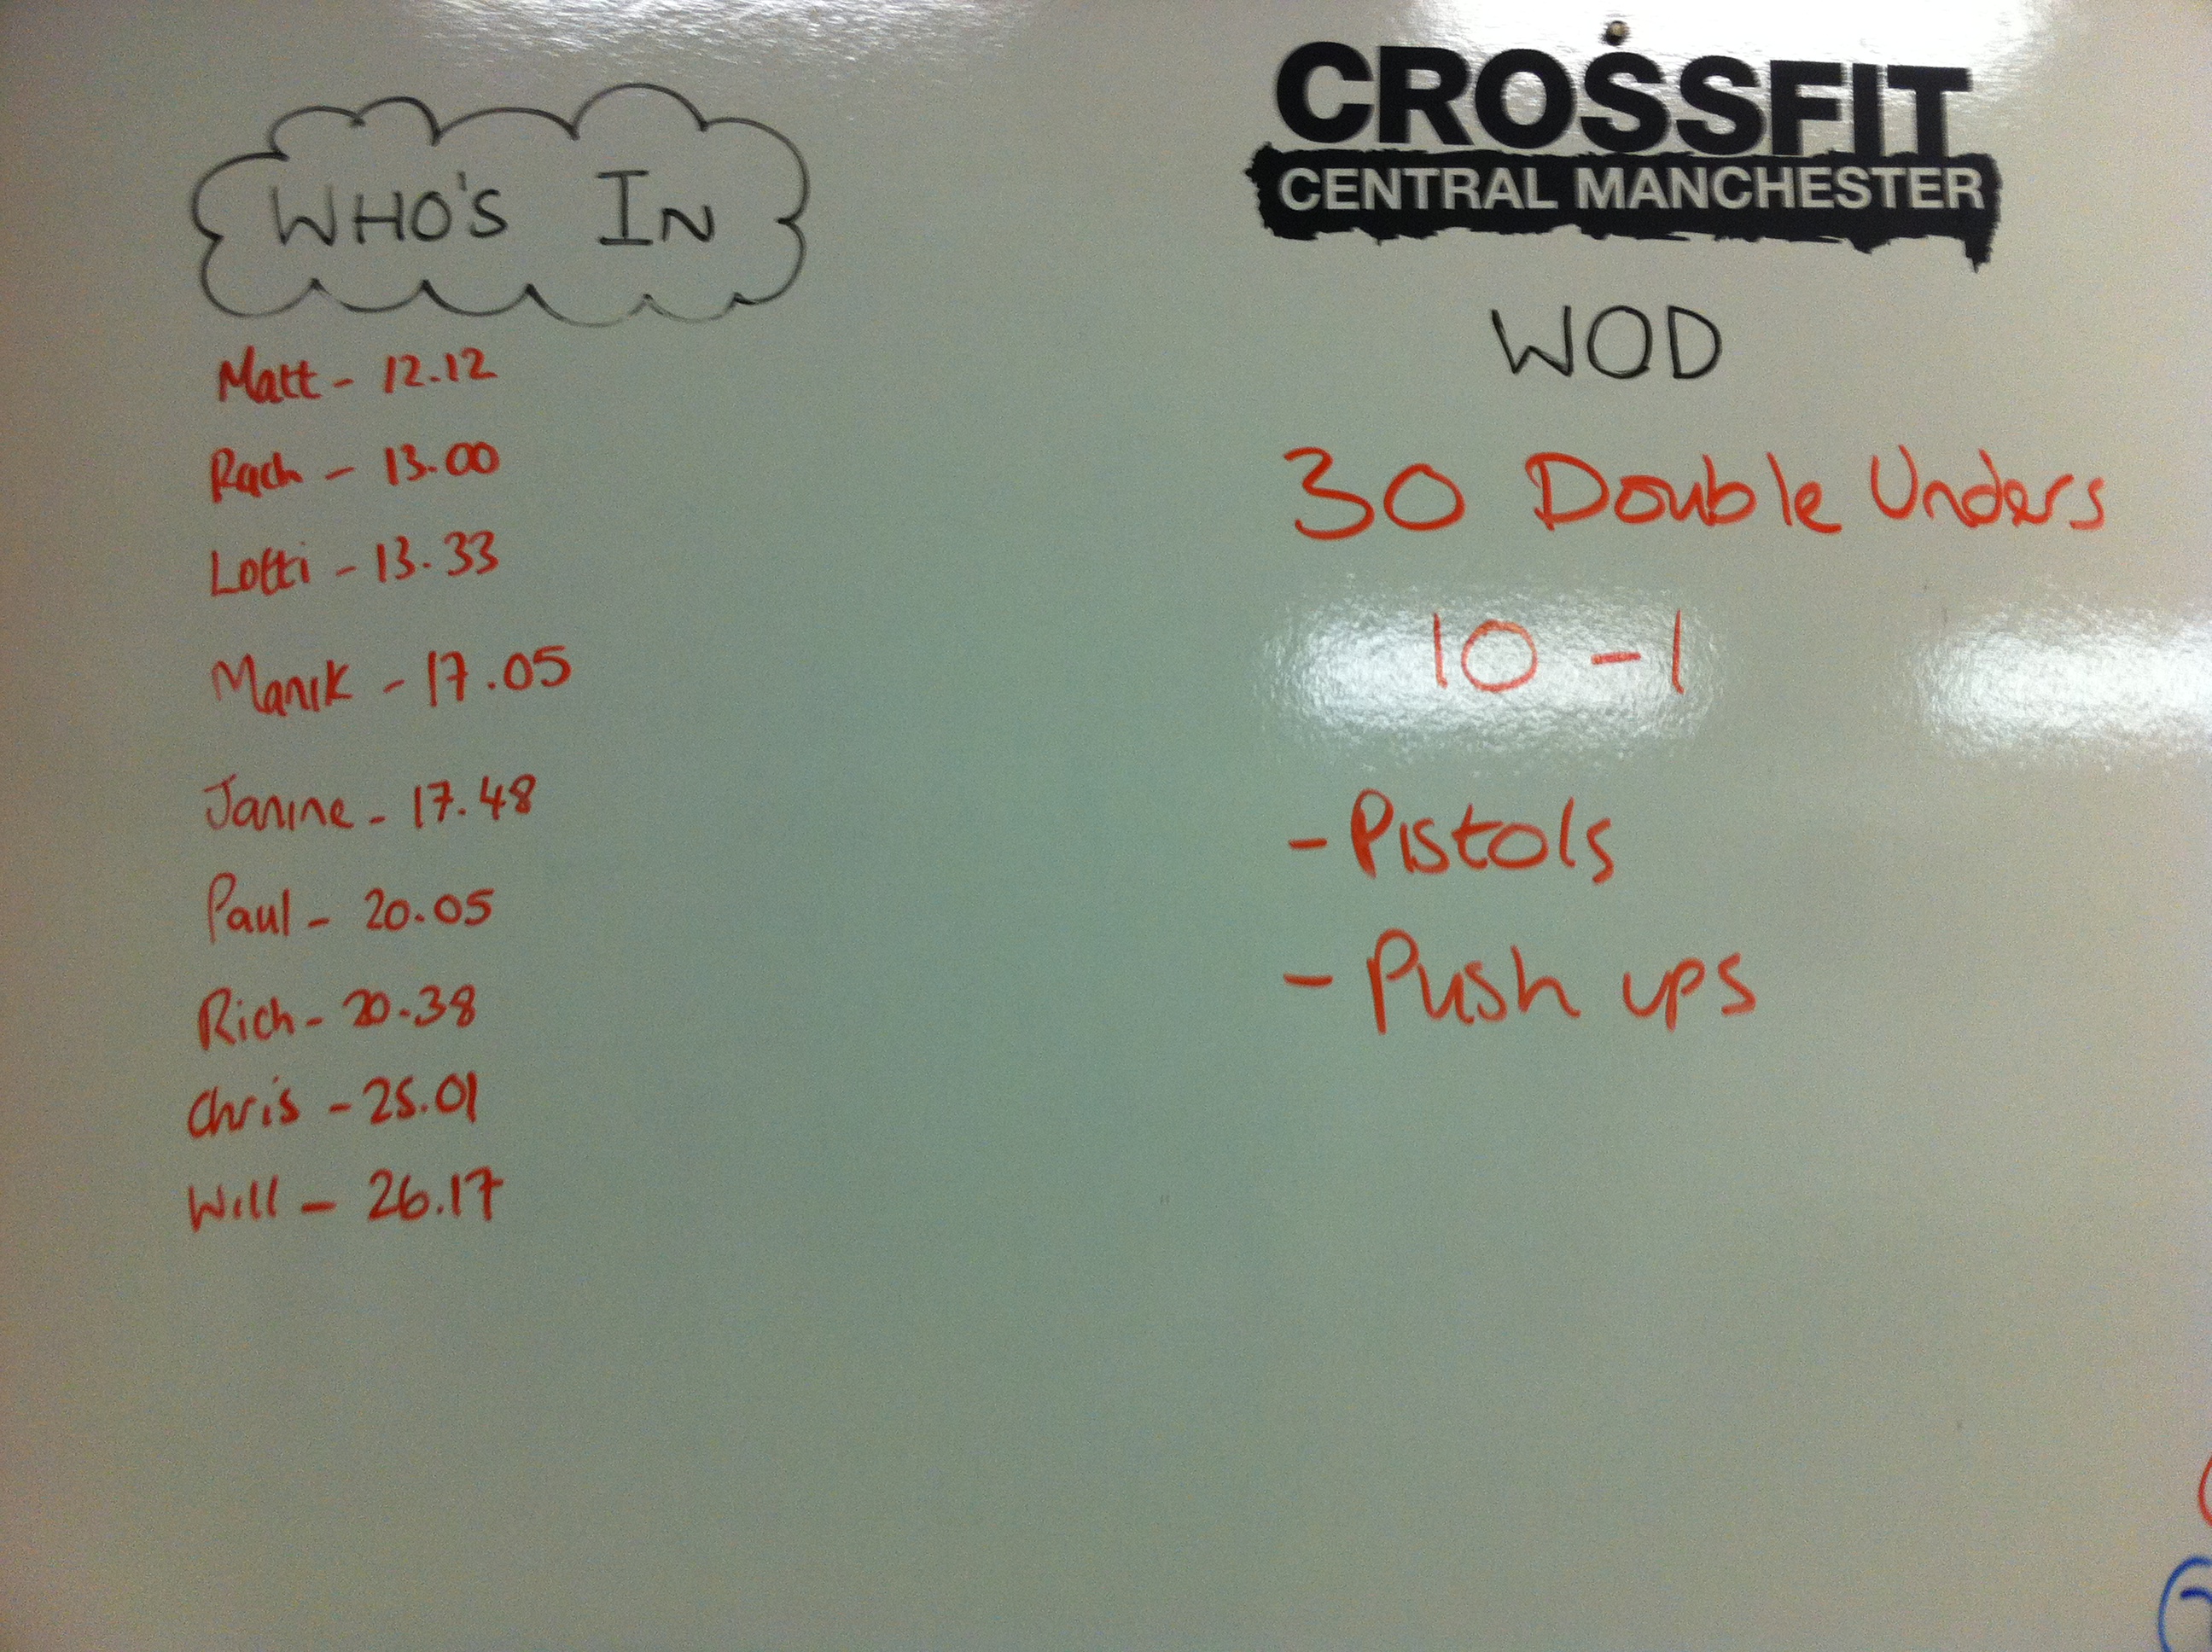 WHO'S IN
Matt - 12.12
Rach - 13.00
Lotti - 13.33
Manik - 17.05
Janine - 17.48
Paul - 20.05
Rich - 20.38
Chris - 25.01
Will - 26.17
CROSSFIT
CENTRAL MANCHESTER
WOD
30 Double Unders
10 - 1
- Pistols
- Push ups